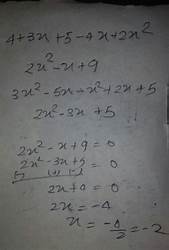 4+3x+5-4x+2x²
2x²-x+9
3x²-5x-x²+2x+5
2x²-3x+5
2x²-x+9=0
2x²-3x+5=0
2x+4=0
2x=-4
x=-4/2=-2